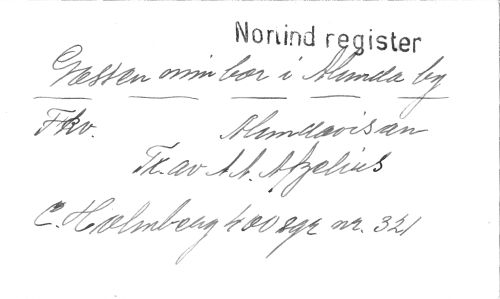 Nonind register
Gossen min bor i Alunda by
Fkv. Alundavisan
Tr. av A. A. Afzelius
C. Holmberg 400 sgr nr. 321